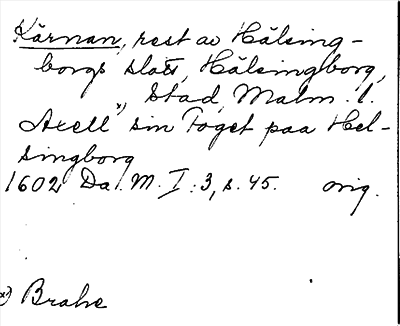 Kärnan, rest av Hälsing-
borgs slott, Hälsingborg,
stad, Malm. l.
Axell x) sin Foget paa Hel-
singborg
1602 Da. M. I:3, s. 45. orig.
x) Brahe